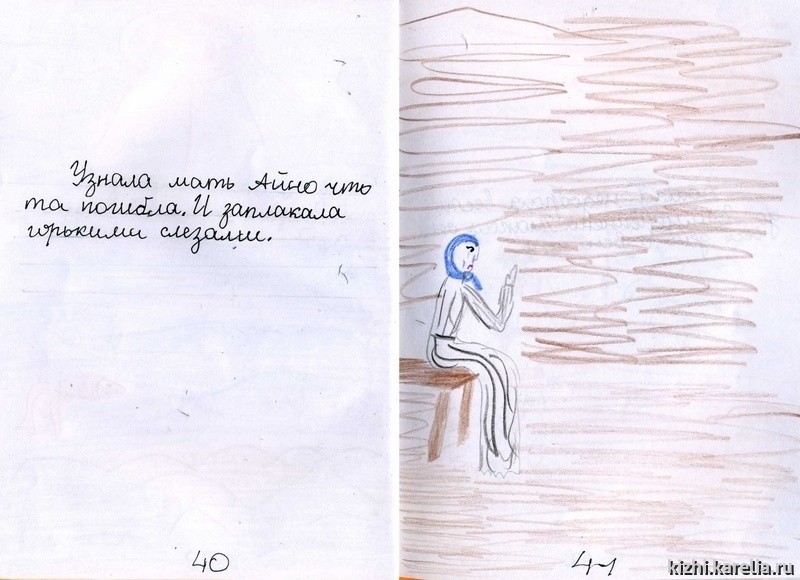 Узнала мать Айно что
та погибла. И заплакала
горькими слезами.
40
41
kizhi.karelia.ru